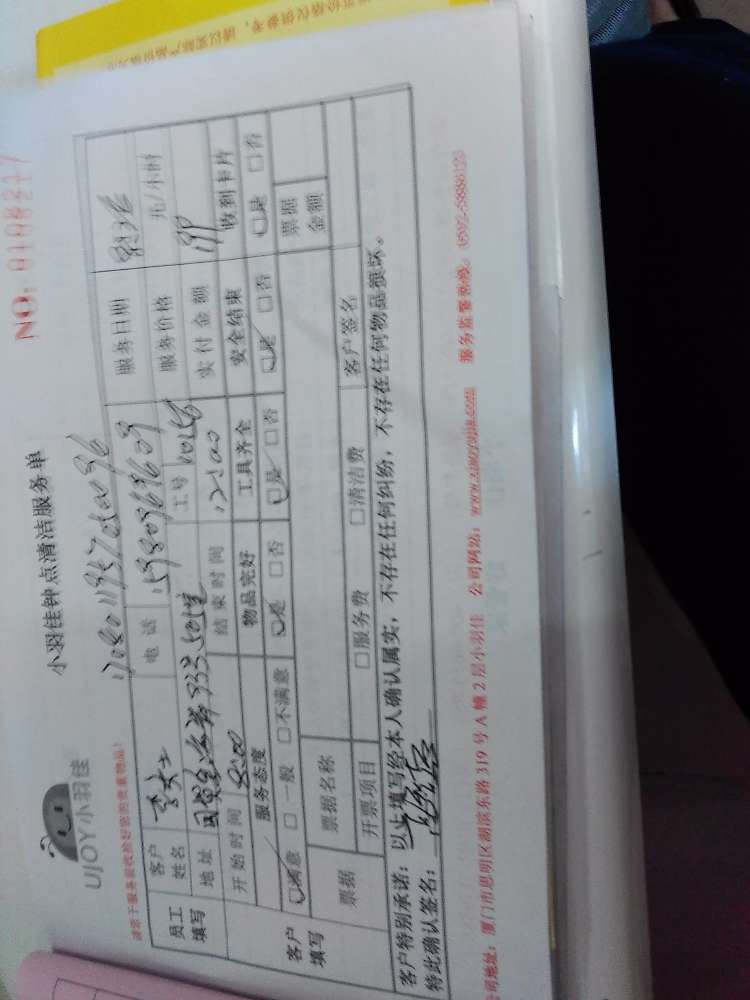 NO: 0108217
小羽佳钟点清洁服务单
UJOY小羽佳
请您于服务前收捡好您的贵重物品!
员工填写
客户姓名 李女士 电话 15980969609 服务日期
服务价格 元/小时
地址 工号 实付金额
开始时间 8:00 结束时间 12:00
客户填写
服务态度 物品完好 工具齐全 安全结束 收到卡片
☑满意 □一般 □不满意 ☑是 □否 ☑是 □否 ☑是 □否 ☑是 □否
票据 票据名称 票据金额
开票项目 □服务费 □清洁费 客户签名
客户特别承诺:以上填写经本人确认属实,不存在任何纠纷,不存在任何物品损坏。
特此确认签名:
公司地址:厦门市思明区湖滨东路319号A幢2层小羽佳 公司网站:www.xiaoyujia.com 服务监督热线:(0592-5886123